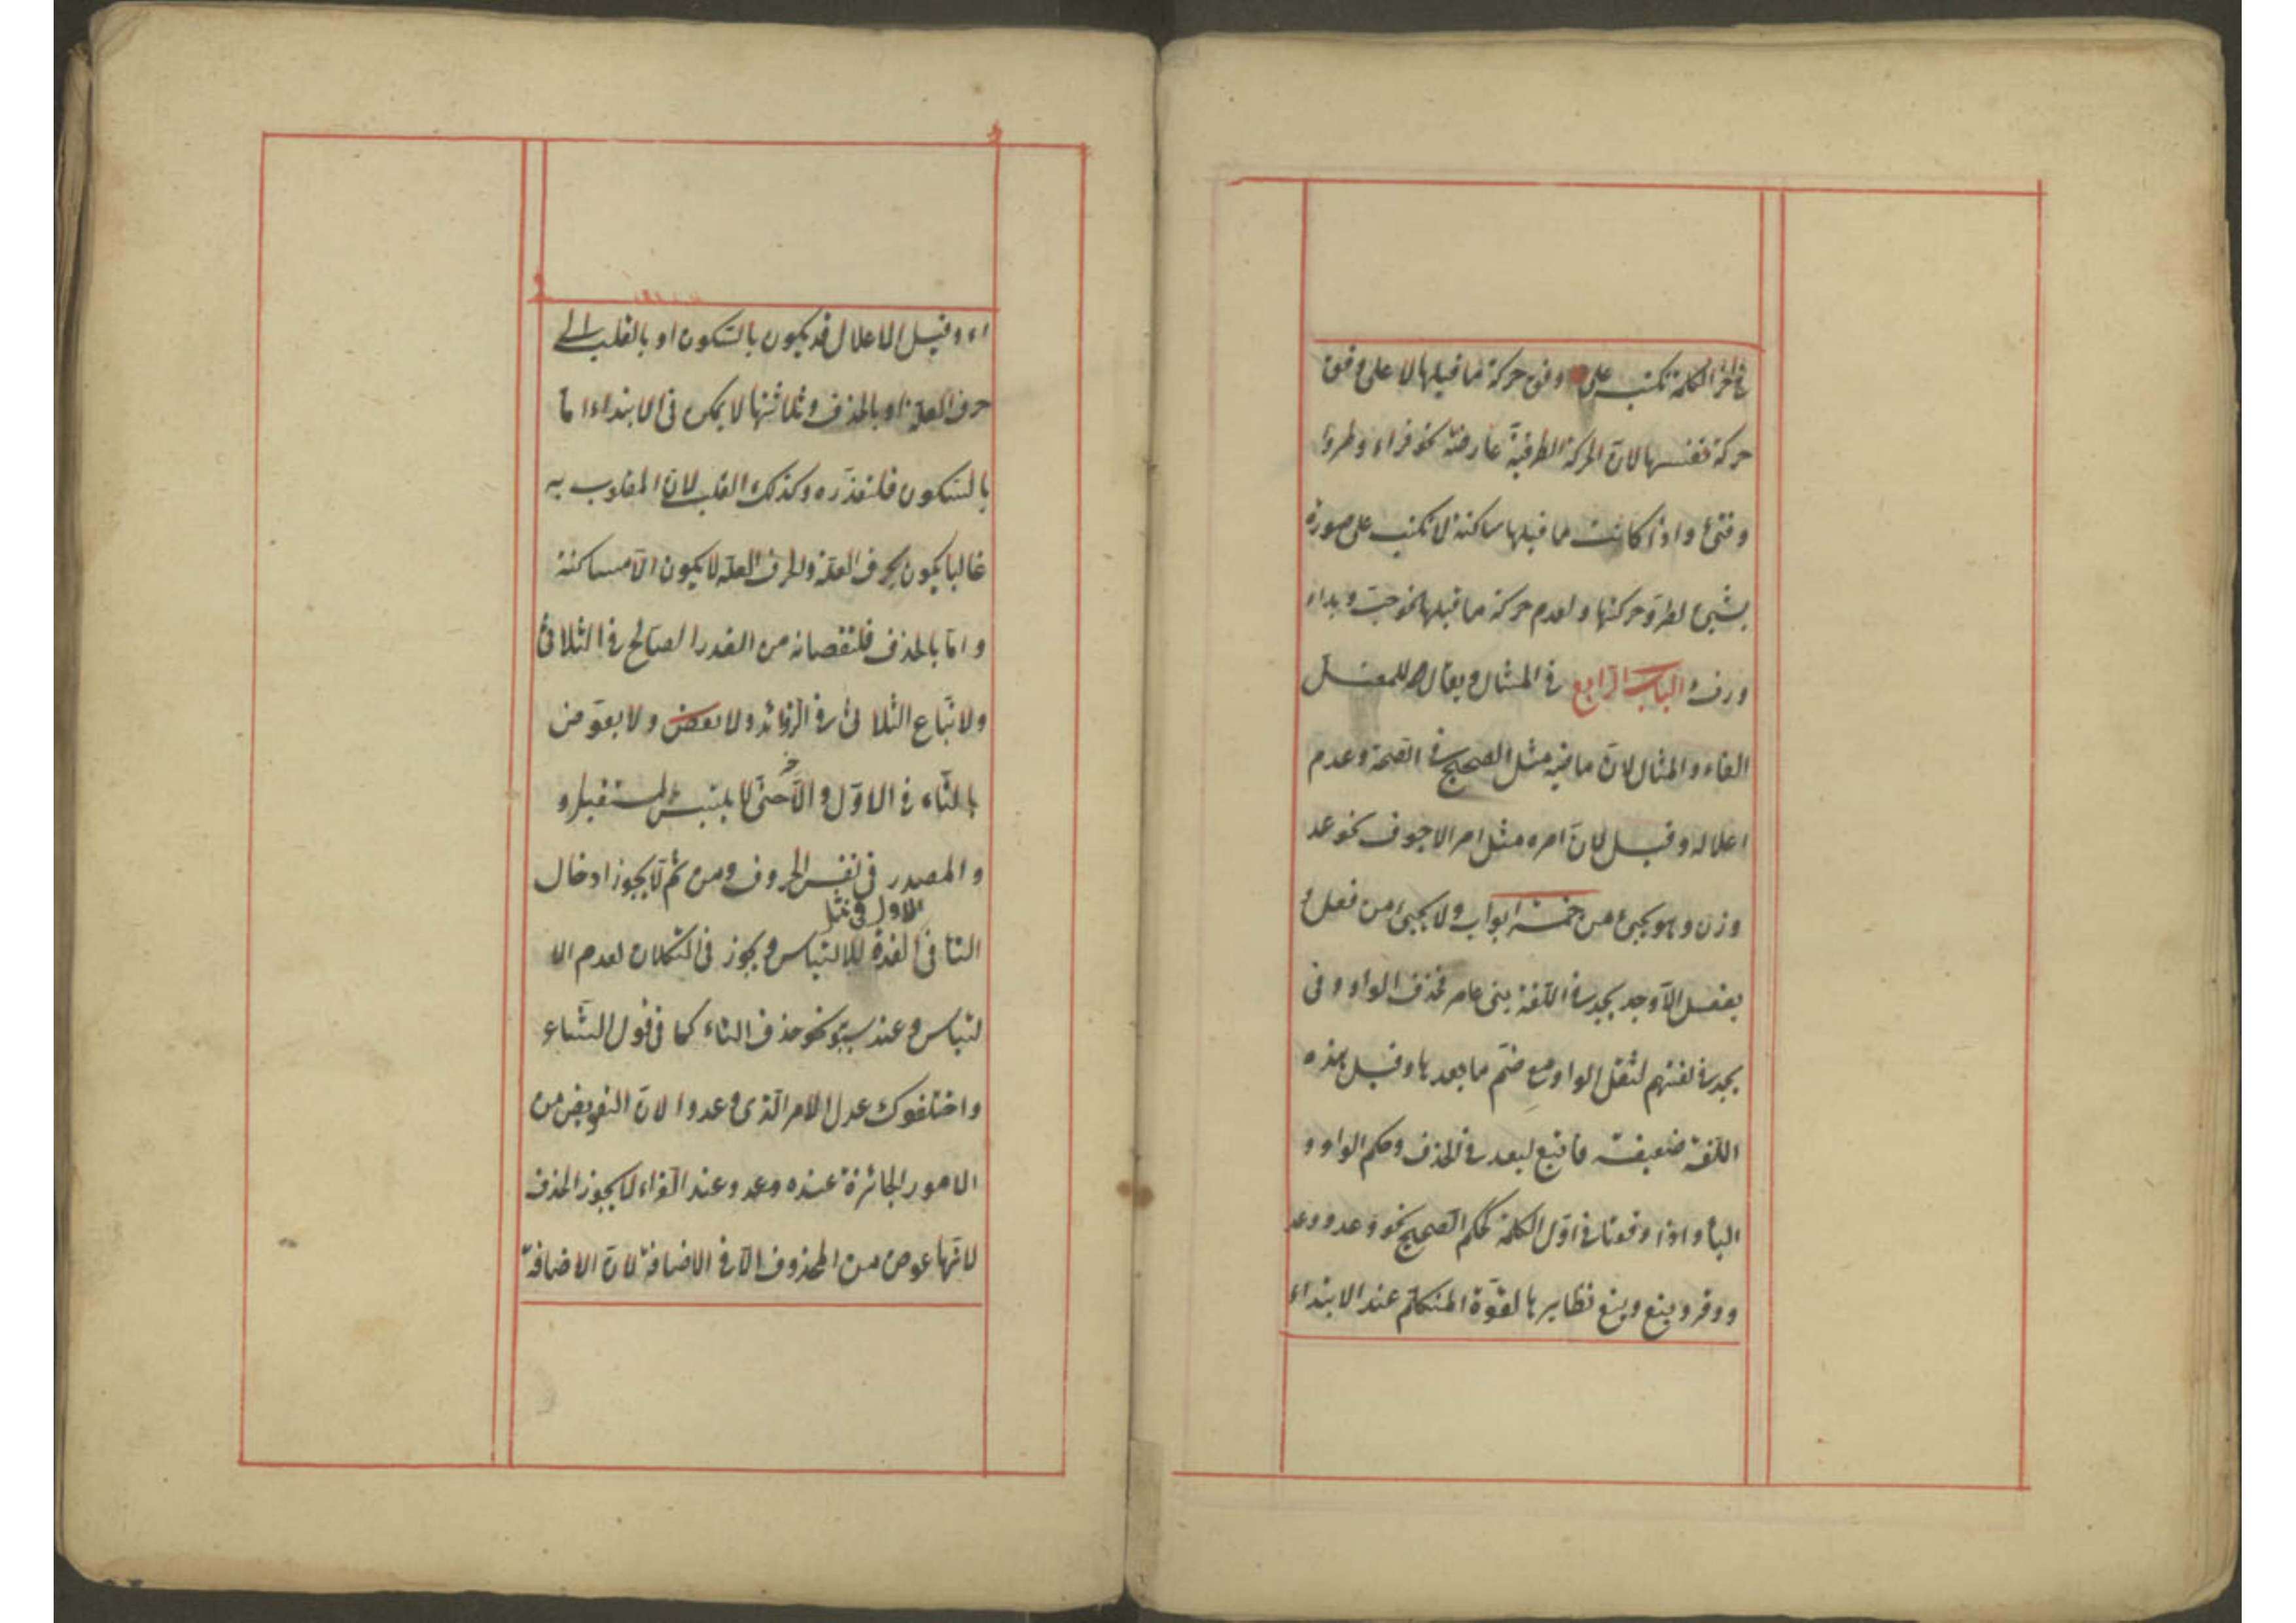 في آخر الكلمة تكتب على وفق حركة ما قبلها لا على وفق
حركة نفسها لان الحركة الطرفية عارضة نحو قراء وطروا
وفتئ واذا كانت ما قبلها ساكنة لا تكتب على صورة
بشيئ لطرو حركتها ولعدم حركة ما قبلها نحو خبء وبداء
ورف الباب الرابع في المثال ويقال للمعتل
الفاء والمثال لان ماضيه مثل الصحيح في الصحة وعدم
اعلاله وقيل لان امره مثل امر الاجوف نحو عد
وزن وهو يجيئ من خمسة ابواب ولا يجيئ من فعل
يفعل الا وجد يجد في اللغة بنى عامر فحذف الواو وفى
يجد في لغتهم لثقل الواو مع ضم ما بعدها وقيل هذه
اللغة ضعيفة فاتبع ليعد في الحذف وحكم الواو و
اليأ واذا وقعتا في اول الكلمة كحكم الصحيح نحو وعد ووعد
ووقر وينع وينع نظايرها لقوة المتكلم عند الابتداء
اء وقيل الاعلال قد يكون بالسكون او بالقلب الى
حرف العلة او بالحذف وثلاثتها لا يمكن فى الابتداء اما
بالسكون فلتعذره وكذلك القلب لان المقلوب به
غالبا يكون بحرف العلة وحرف العلة لا يكون الا مساكنة
واما بالحذف فلنقصانه من القدر الصالح في الثلاثئ
ولاتباع الثلاثئ في الزوائد ولا يعوض ولا يعوض
بالتاء في الاول والآخر حتى لا يلتبس المستقبل و
والمصدر فى نفس الحروف ومن ثم لا يجوز ادخال
الاول في مثل
التا فى العدة للالتباس ويجوز فى التكلان لعدم الا
لتباس وعند سيبويه نحو حذف التاء كما فى قول الشاع
واختلفوك عدل الامر الذى وعدوا لان التعويض من
الامور الجائزة عنده وعد وعند الفراء لا يجوز الحذف
لانها عوض من المحذوف الا في الاضافة لان الاضافة